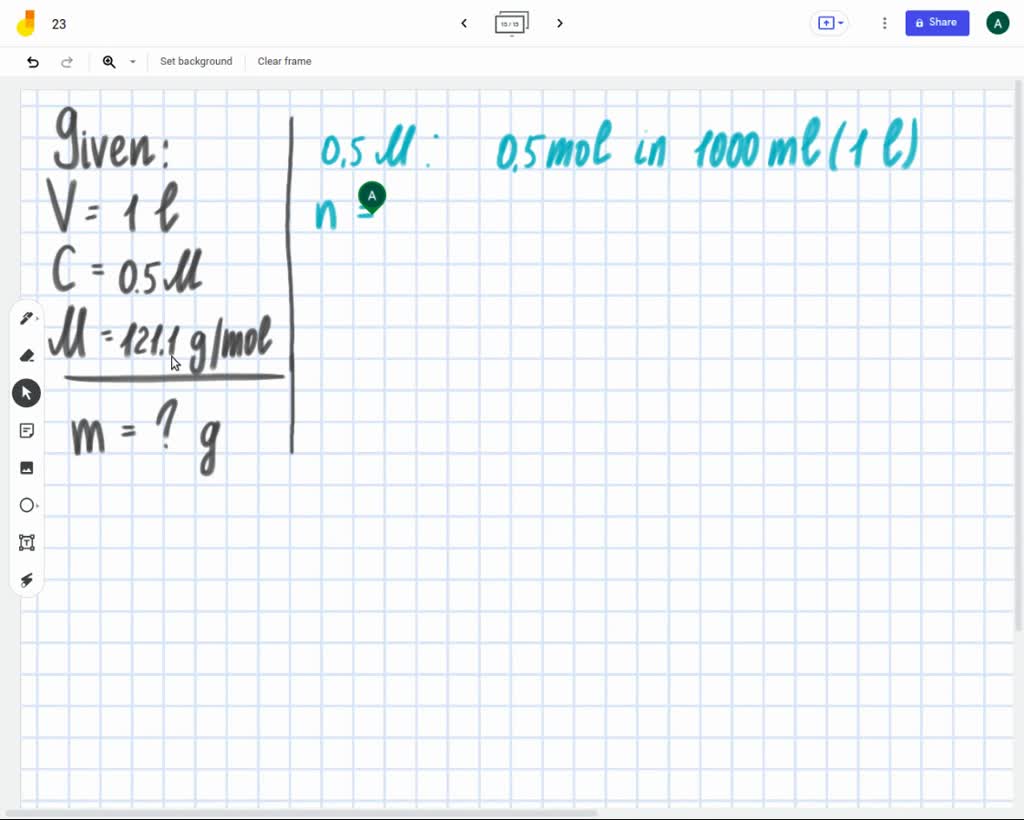 23
15 / 15
Share
A
Set background
Clear frame
Given:
V = 1 l
C = 0.5 M
M = 121.1 g/mol
m = ? g
0,5 M : 0,5 mol in 1000 ml (1 l)
n =
A